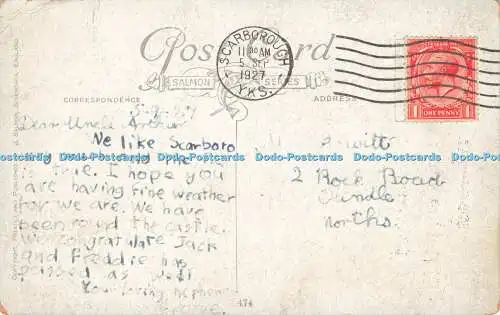 Post Card
SALMON SERIES
SCARBOROUGH
11 AM
5 SEP
1927
YKS.
ONE PENNY
CORRESPONDENCE
ADDRESS
5.9.27
Dear Uncle Archie
We like Scarboro
Dodo-Postcards Dodo-Postcards Dodo-Postcards Dodo-Postcards Dodo-Postcards
is true. I hope you
are having fine weather
for we are. We have
been round the castle.
We congratulate Jack
and Freddie has
passed as well
Your loving nephew
2 Rock Road
Oundle
Norths.
474